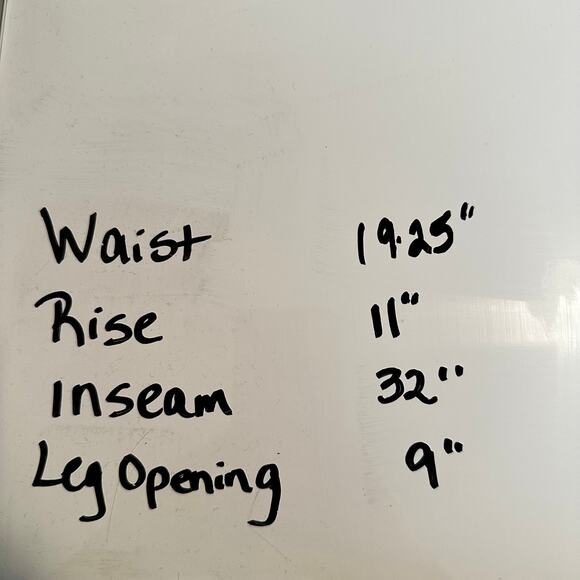 Waist 19.25"
Rise 11"
Inseam 32"
Leg Opening 9"